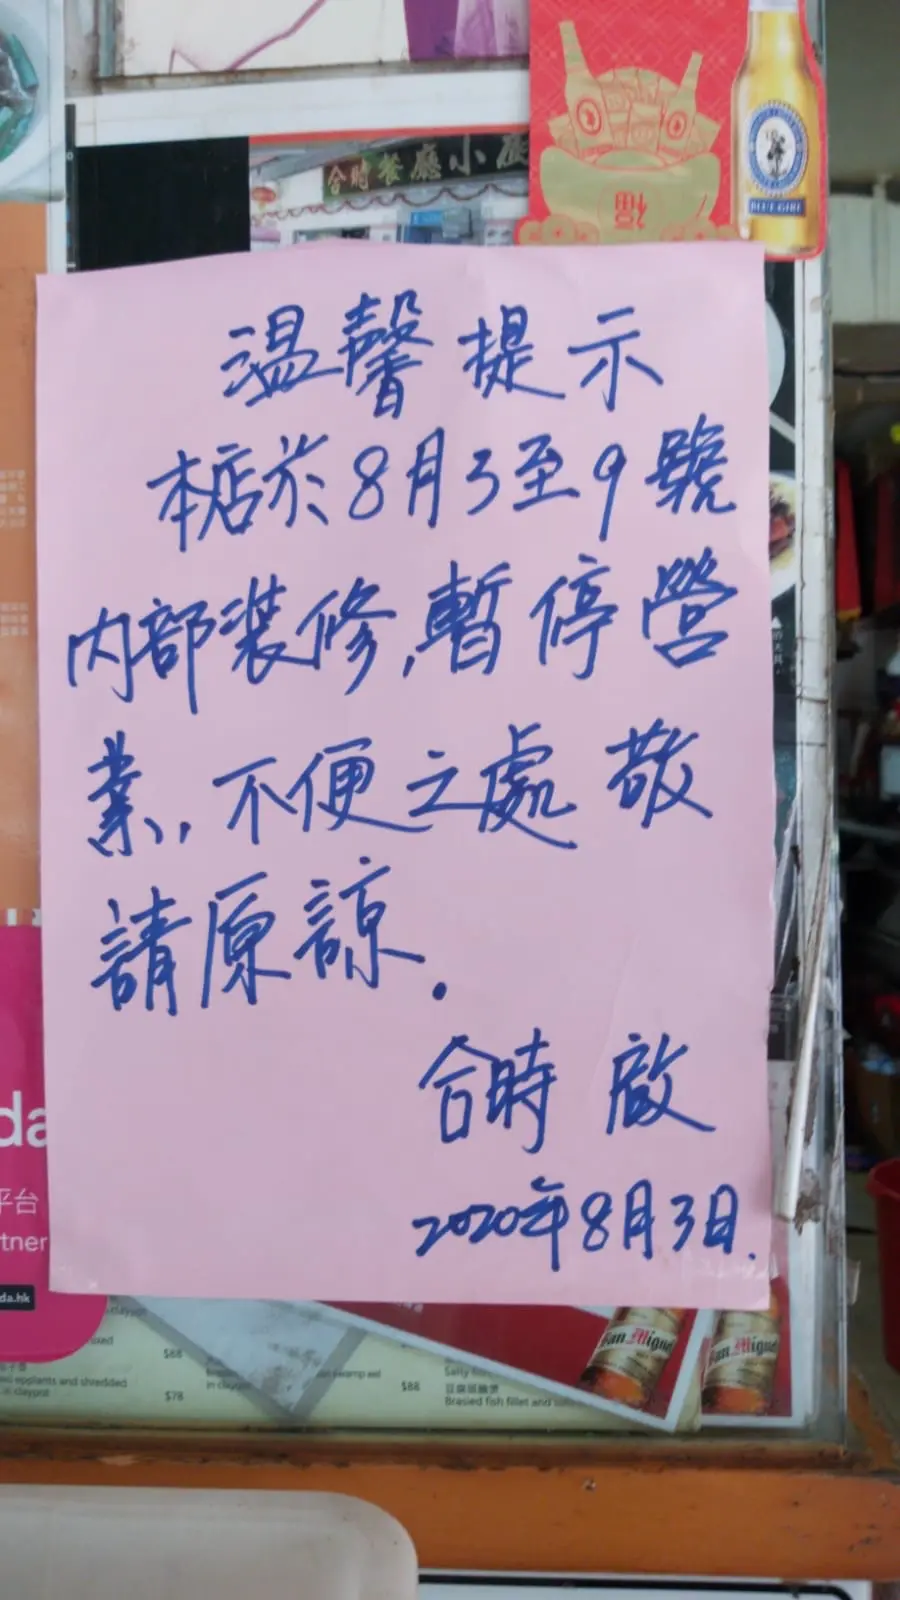 合時餐廳小廚
福
BLUE GIRL
溫馨提示
本店於8月3至9號
内部装修,暫停營
業,不便之處敬
請原諒.
合時 啟
2020年8月3日.
da
平台
tner
da.hk
$68
eggplants and shredded
in claypot
$78
$88
Braised fish fillet and
San Miguel
San Miguel